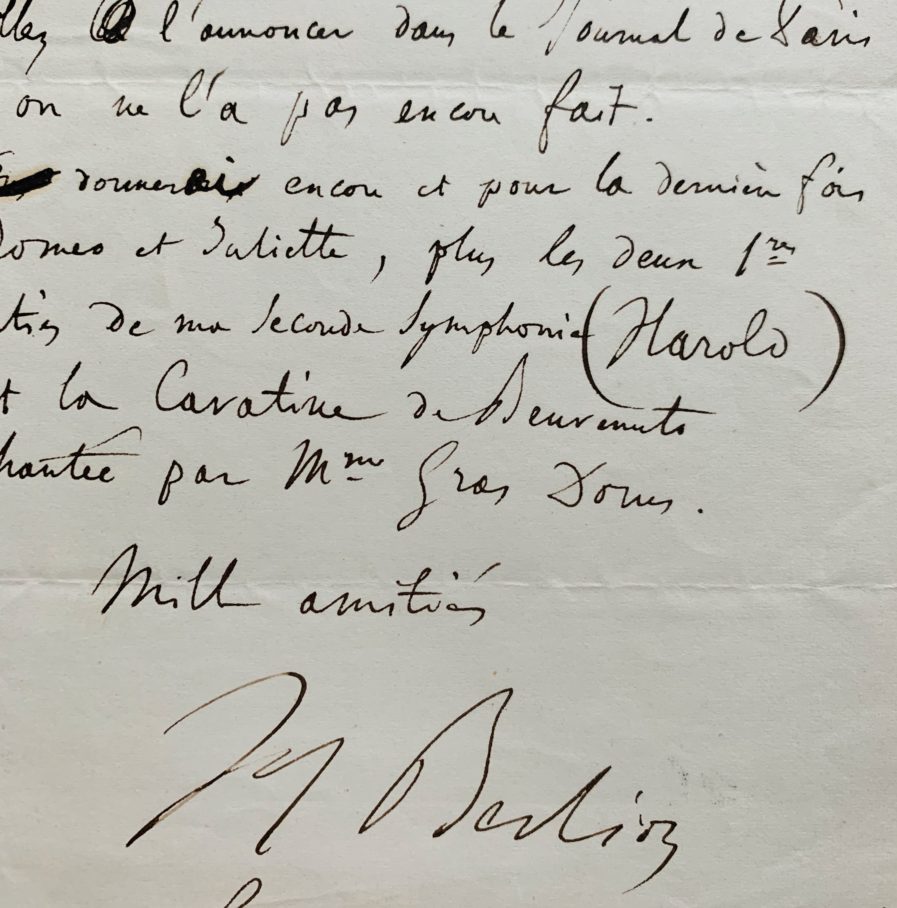 llez l'annoncer dans le Journal de Paris
on ne l'a pas encore fait.
donnerai encore et pour la dernière fois
Romeo et Juliette, plus les deux 1res
ties de ma seconde Symphonie (Harold)
t la Cavatine de Benvenuto
hantée par Mme Gras Dorus.
Mille amitiés
H Berlioz